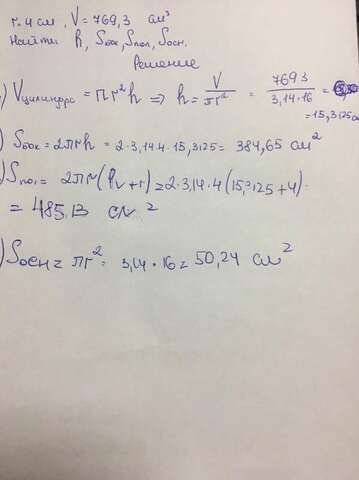 r=4 см, V=769,3 см³
Найти h, Sбок, Sпол, Sосн.
Решение
) Vцилиндра = πr²h ⇒ h = V/πr² = 769,3/3,14·16 =
= 15,3125с
) Sбок = 2πrh = 2·3,14·4·15,3125 = 384,65 см²
) Sпол = 2πr(h+r) = 2·3,14·4(15,3125+4) =
= 485,13 см²
) Sосн = πr² = 3,14·16 = 50,24 см²